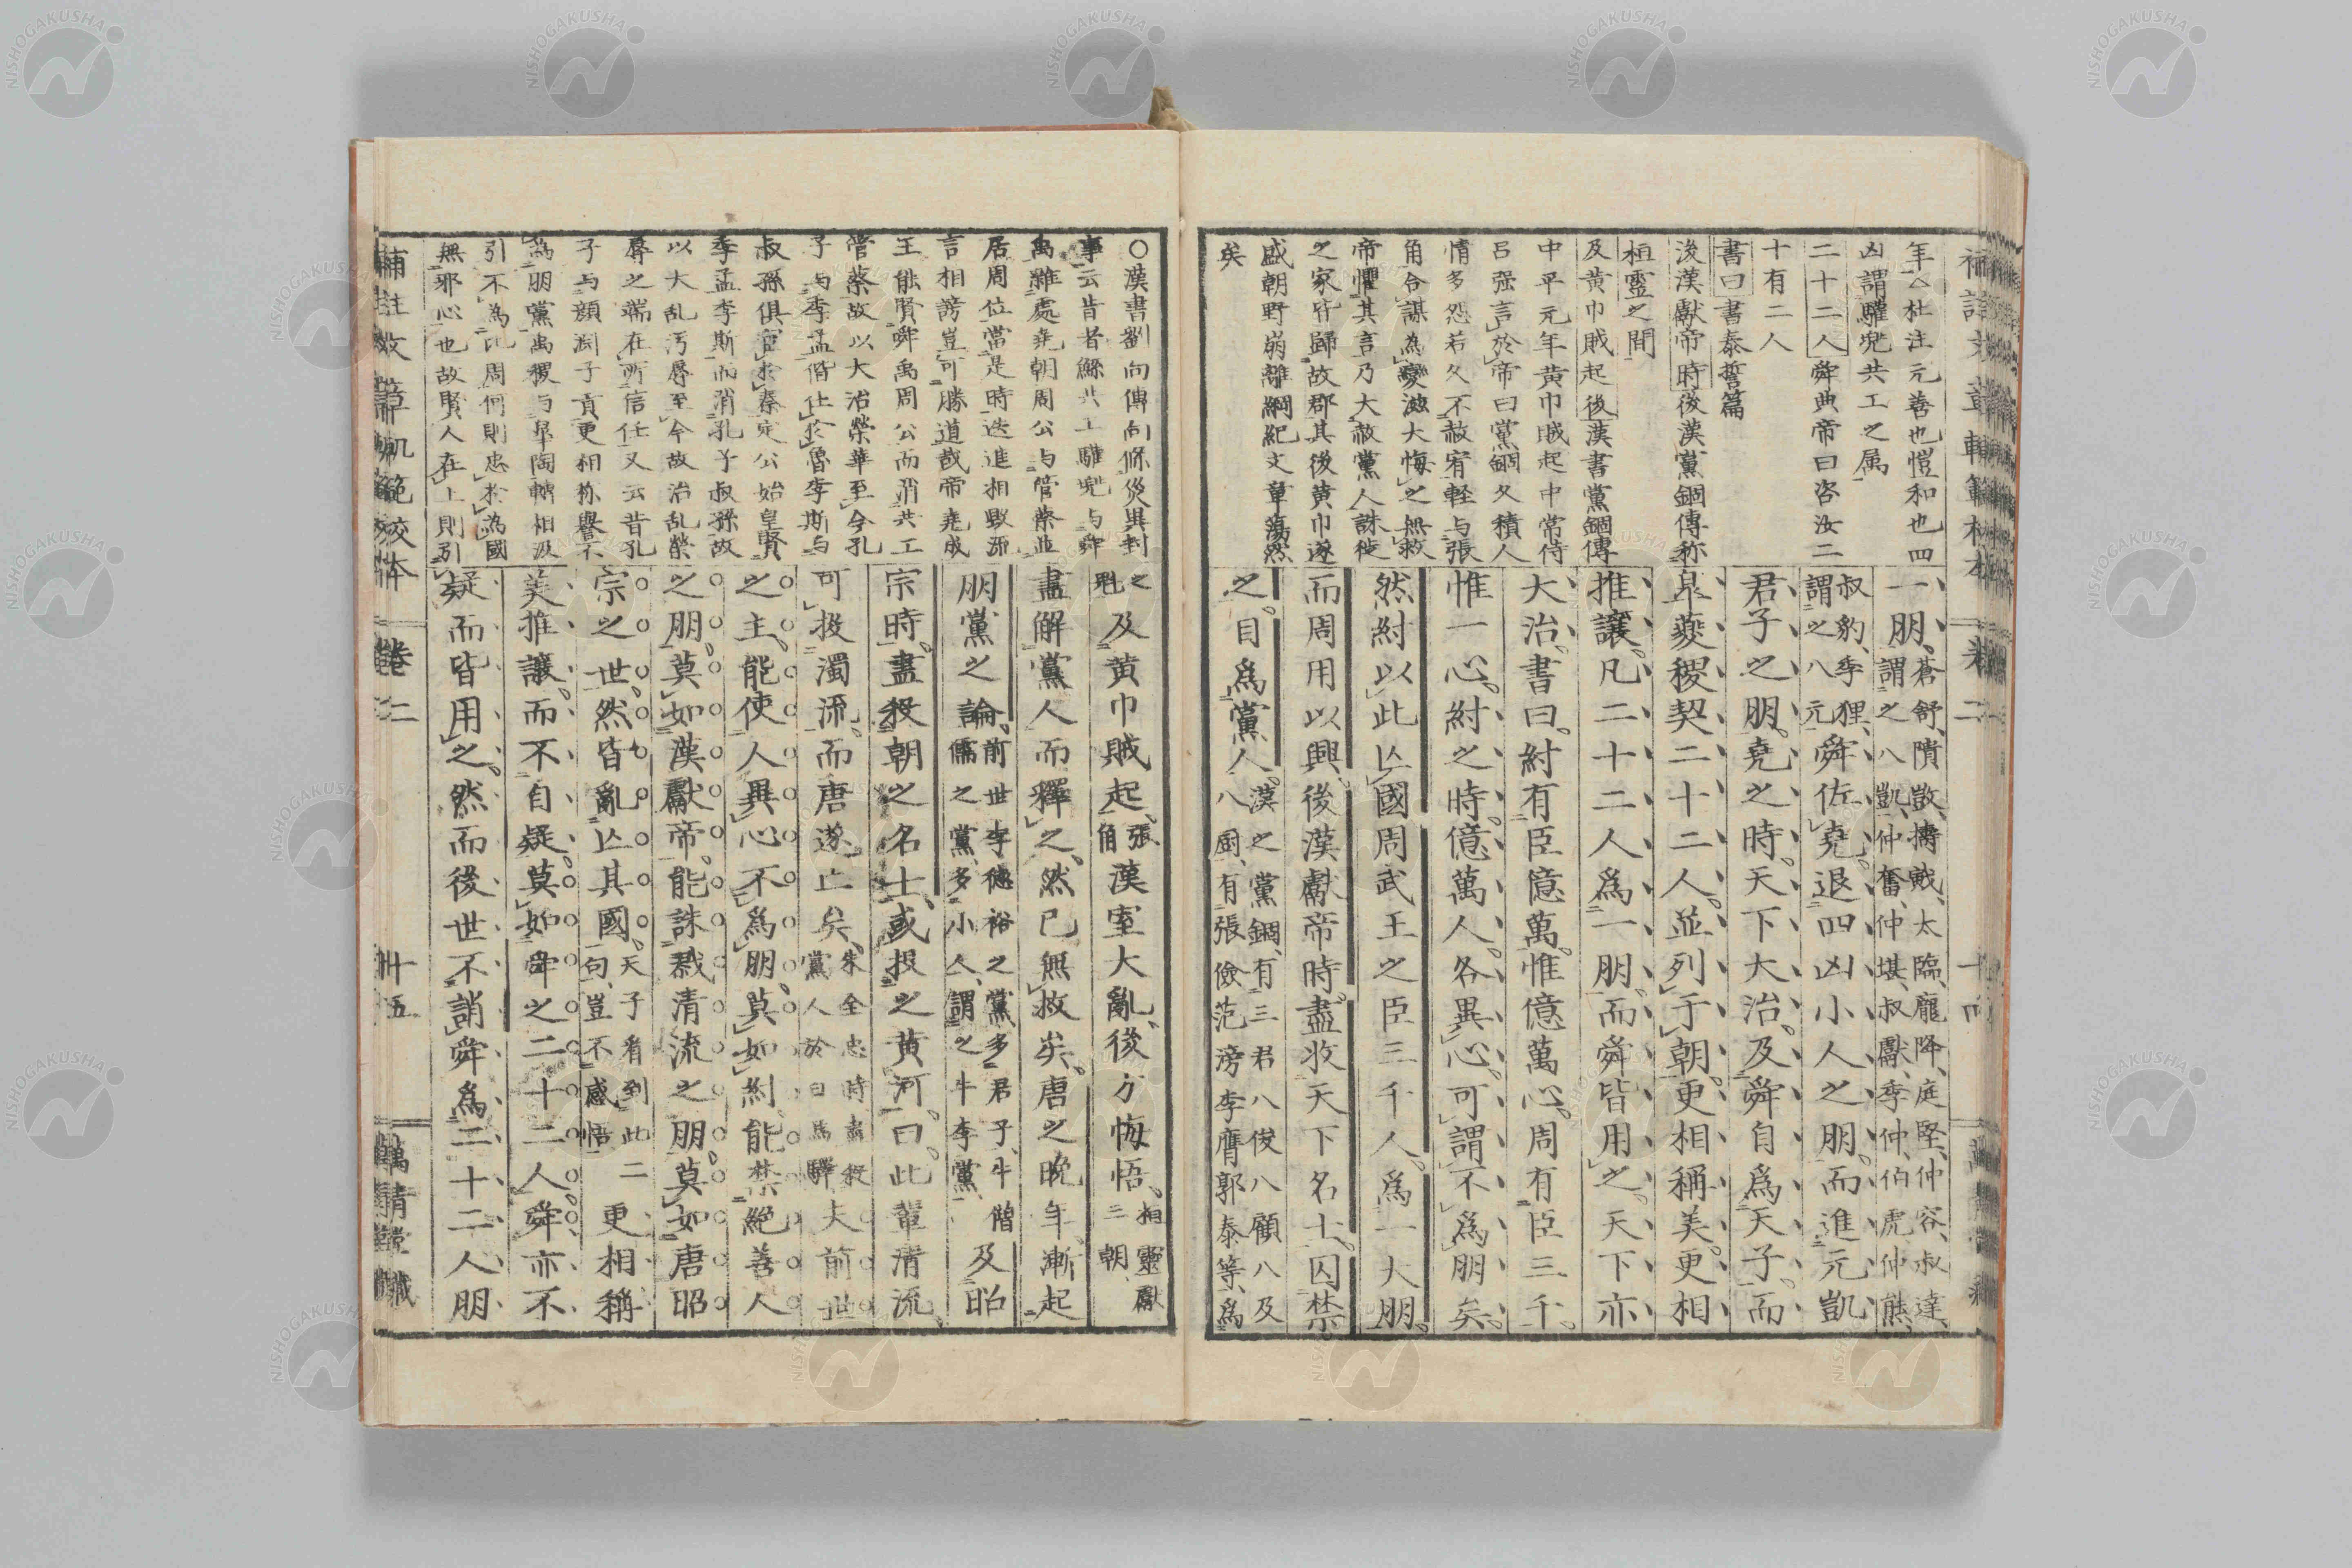 年㐫杜注元善也愷和也四
凶謂驩兜共工之属
二十二人舜典帝曰咨汝二
十有二人
書曰書泰誓篇
後漢獻帝時後漢黨錮傳称
桓靈之間
及黄巾賊起後漢書黨錮傳
中平元年黄巾賊起中常侍
呂强言於帝曰黨錮久積人
情多怨若久不赦宥軽与張
角合謀為變滋大悔之無救
帝懼其言乃大赦黨人誅徙
之家皆歸故郡其後黄巾遂
盛朝野崩離綱紀文章蕩然
矣
一朋蒼舒、隤敳、擣戭、太臨、龐降、庭堅、仲容、叔達、
謂之八凱、仲奮、仲堪、叔獻、季仲、伯虎、仲熊、
叔豹、季狸、
謂之八元舜佐堯退四凶小人之朋而進元凱
君子之朋堯之時天下大治及舜自爲天子而
皐夔稷契二十二人並列于朝更相稱美更相
推讓凡二十二人爲一朋而舜皆用之天下亦
大治書曰紂有臣億萬惟億萬心周有臣三千
惟一心紂之時億萬人各異心可謂不爲朋矣
然紂以此亾國周武王之臣三千人爲一大朋
而周用以興後漢獻帝時盡收天下名士囚禁
之目爲黨人漢之黨錮、有三君八俊八顧八及
八厨、有張儉范滂李膺郭泰等、爲
補註文章軌範校本 卷二 十四
〇漢書劉向傳向條災異封
事云昔者鯀共工驩兜与舜
禹雜處堯朝周公与管蔡並
居周位當是時迭進相毀流
言相謗豈可勝道哉帝堯成
王能賢舜禹周公而消共工
管蔡故以大治榮華至今孔
子与季孟偕仕於魯李斯与
叔孫俱宦於秦定公始皇賢
季孟李斯而消孔子叔孫故
以大乱汚辱至今故治乱榮
辱之端在所信任又云昔孔
子与顔淵子貢更相称譽不
為朋黨禹稷与皐陶轉相汲
引不為比周何則忠於為國
無邪心也故賢人在上則引
之
魁及黄巾賊起張
角漢室大亂後方悔悟桓靈獻
三朝
盡解黨人而釋之然已無救矣唐之晩年漸起
朋黨之論前世李德裕之黨多君子、牛僧
儒之黨、多小人、謂之牛李黨及昭
宗時盡殺朝之名士或投之黄河曰此輩清流
可投濁流而唐遂亡矣朱全忠時盡殺
黨人於白馬驛夫前世
之主能使人異心不爲朋莫如紂能禁絶善人
之朋莫如漢獻帝能誅戮清流之朋莫如唐昭
宗之世然皆亂亾其國天子看到此二
句、豈不感悟更相稱
美推讓而不自疑莫如舜之二十二人舜亦不
疑而皆用之然而後世不誚舜爲二十二人朋
補註文章軌範校本 卷二 十五 萬青堂藏
NISHOGAKUSHA